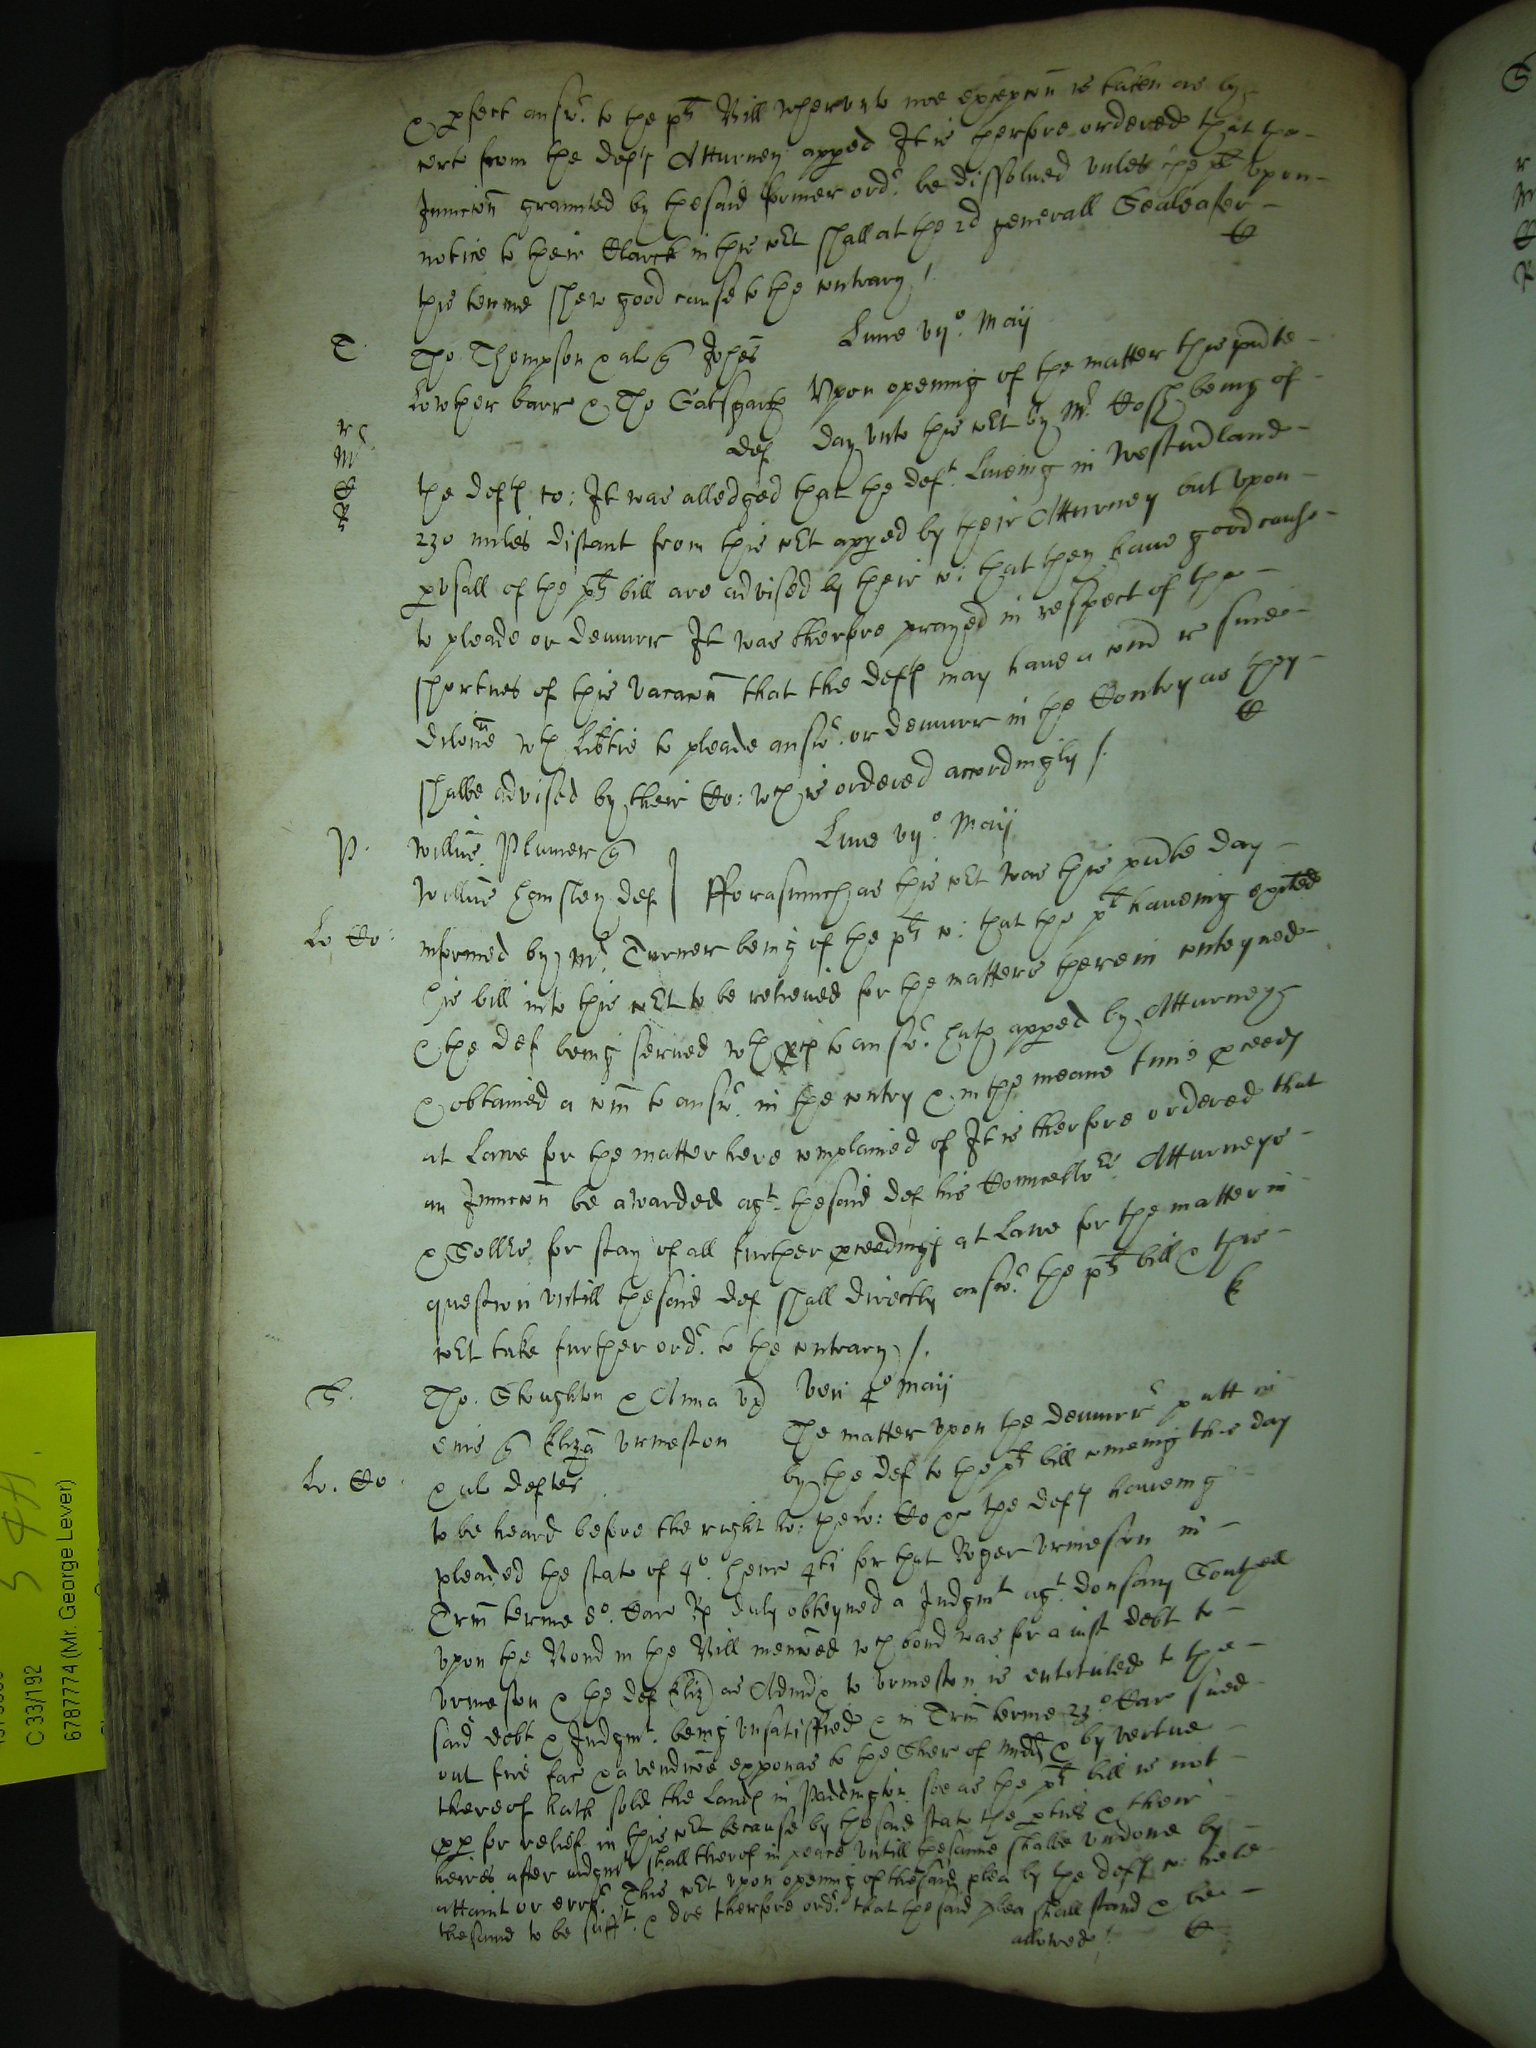 & pfect answ:r to the pts Bill wherunto noe excepcon is taken as by
cert from the defts Atturney apped It is therfore ordered that the
Iniuncon graunted by the said former ord:r be dissolued vnles the pt vpon
notice to their Clarck in this Cort shall at the 2d generall Seale after
this terme shew good cause to the contrary /.
T
Tho Thompson & al q Iohes
Lune vijo. Maij
Lowther barr & Tho Gatsgarth
Vpon opening of the matter this pnte
r
Mr
C
R
def
day vnto this Cort by Mr
being of
the defts co: It was alledged that the deft. liueing in Westmdland
230 miles distant from this Cort apped by their Atturney but vpon
pvsall of the pts bill are advised by their co: that they haue good cause
to pleade or demurr It was therfore prayed in respect of the
shortnes of this vacacon that the defts may haue a comd
wth libtie to pleade answ:r or demurr in the Contry as they
shalbe advised by their Co: wch is ordered accordingly /.
P.
Willm. Plumer q
Lune vijo. Maij
Willm def
Fforasmuch as this Cort was this pnte day
Lo Co:
informed by Mr. Turner being of the pts co: that the pt haueing exited
his bill into this Cort to be releeued for the matters therein conteyned
& the def being serued wth pces to answ:r hath apped by Atturney
& obtained a com to answ:r in the contry & in the meane time pceeds
at Lawe for the matter here complained of It is therfore ordered that
an Iniuncon be awarded agt. the said def his Councellrs Atturneys
& Sollrs for stay of all further pceedings at Lawe for the matter in
question vntill the said def shall directly answ:r the pts bill & this
Cort take further ord:r to the contrary /.
S.
Tho. Stoughton & Anna
Ven 4o Maij
eius q Eliza Vrmeston
The matter vpon the demurr:r putt in
Lo. Co
& al deftes
by the def to the pts bill comeing this day
to be heard before the right ho: the Lo: Co the defts haueing
pleaded the state of 4o. Henr 4ti for that Roger Vrmeston in
Trin terme 8o. Car Rs duly obteyned a Iudgmt agt.
vpon the Bond in the Bill menconed wch bond was for a iust debt to
Vrmeston & the def (Eliz) as Admx to Vrmeston is entituled to the
said debt & Iudgmt. being vnsatisfied & in Trin terme 23o. Car sued
out fieri fac & a vendicoe exponas to the Sher of Midds & by vertue
thereof hath sold the Lands in Paddington soe as the pts bill is not
pp for relief in this Cort because by the said state the pties & their
heires after iudgmt shall therof in peace vntill the same shalbe vndone by
attaint or err:r This Cort vpon opening of the said plea by the defts co: held
the same to be sufft. & doe therfore ord:r that the said plea shall stand & be
allowed /
C 33/192
6787774 (Mr. George Lever)